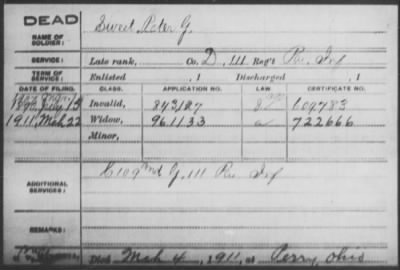 DEAD
NAME OF SOLDIER: Sweet Peter G.
SERVICE: Late rank, Co. D, 111 Reg't Pa. Inf
TERM OF SERVICE: Enlisted , 1 Discharged , 1
DATE OF FILING. CLASS. APPLICATION NO. LAW. CERTIFICATE NO.
Invalid, 843127 609783
1911, Mch 22 Widow, 961133 722666
Minor,
ADDITIONAL SERVICES: C 109" G, 111 Pa. Inf
REMARKS:
Died Mch 4, 1911, at Perry, Ohio